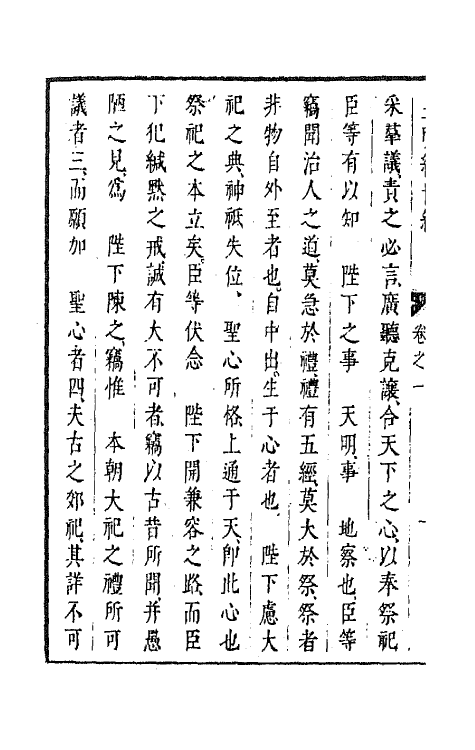 卷之一
采羣議責之必言廣聽克讓合天下之心以奉祭祀
臣等有以知 陛下之事 天明事 地察也臣等
竊聞治人之道莫急於禮禮有五經莫大於祭祭者
非物自外至者也自中出生于心者也 陛下慮大
祀之典神祗失位 聖心所格上通于天卽此心也
祭祀之本立矣臣等伏念 陛下開兼容之路而臣
下犯緘黙之戒誠有大不可者竊以古昔所聞并愚
陋之見爲 陛下陳之竊惟 本朝大祀之禮所可
議者三而願加 聖心者四夫古之郊祀其詳不可